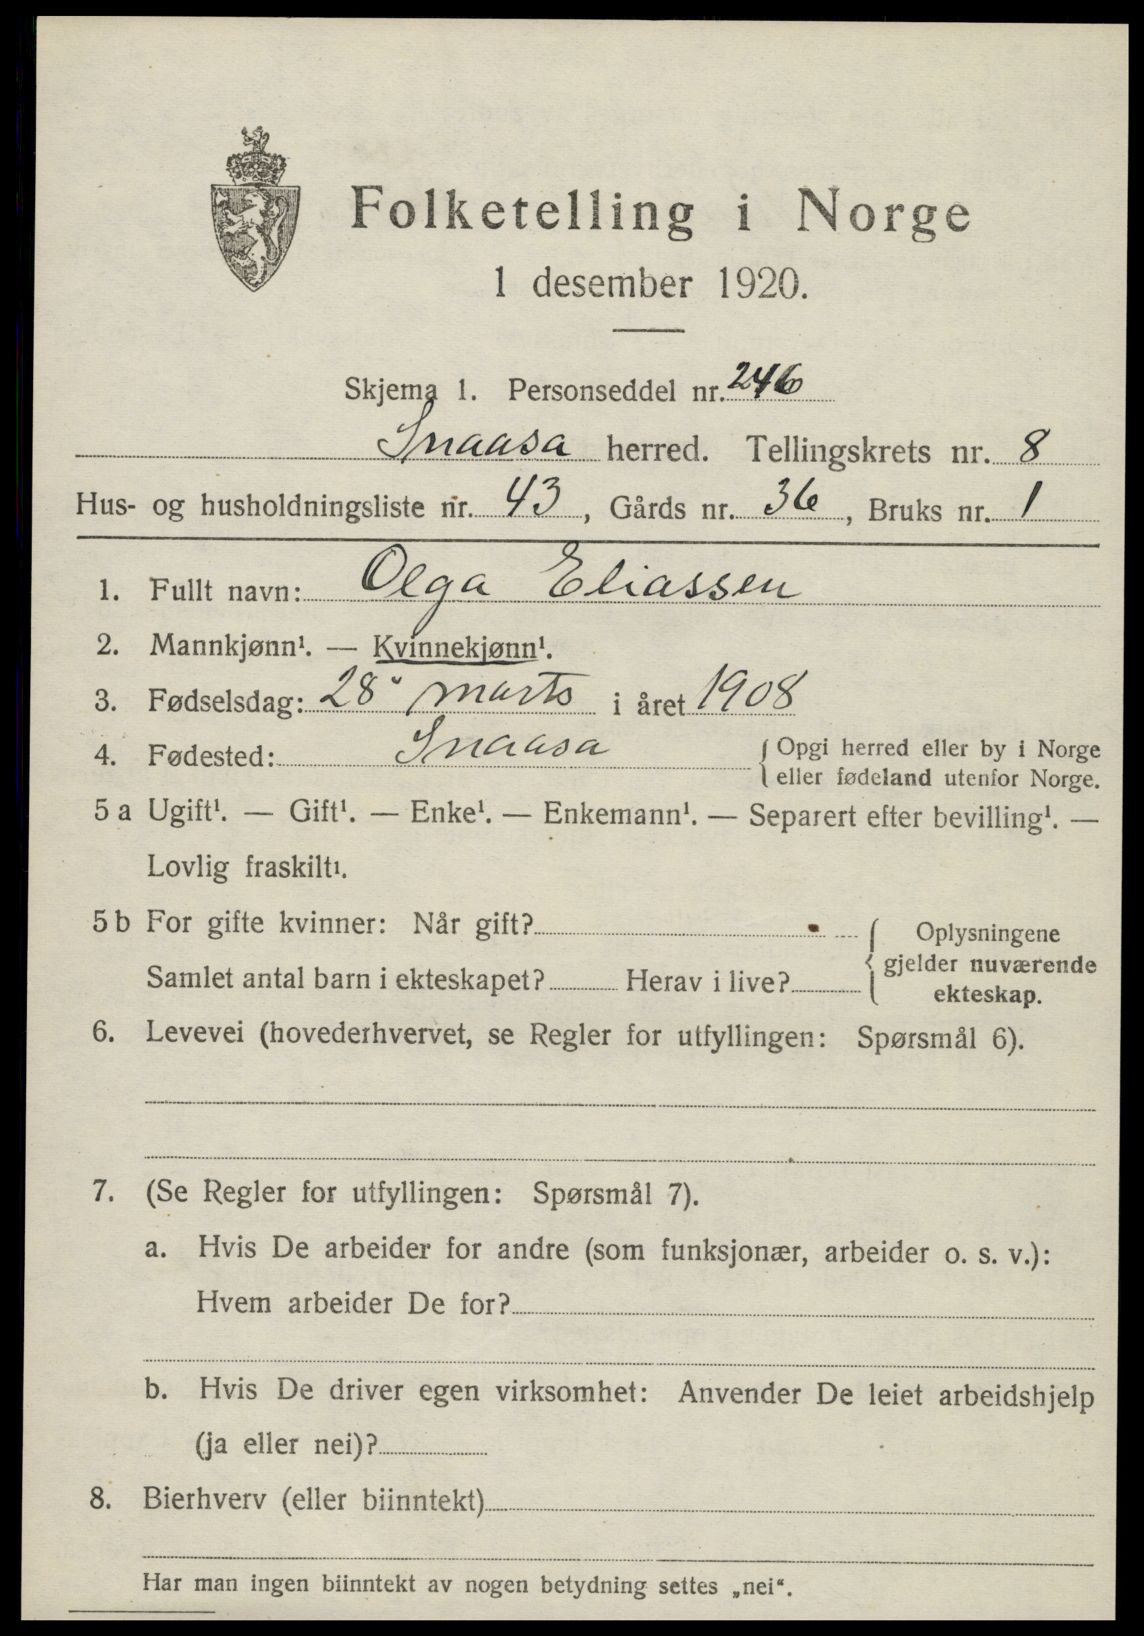 Folketelling i Norge
1 desember 1920.
Skjema 1. Personseddel nr. 246
Snaasa herred. Tellingskrets nr. 8
Hus- og husholdningsliste nr. 43, Gårds nr. 36, Bruks nr. 1
1. Fullt navn: Olga Eliassen
2. Mannkjønn¹. — Kvinnekjønn¹.
3. Fødselsdag: 28 marts i året 1908
4. Fødested: Snaasa { Opgi herred eller by i Norge
eller fødeland utenfor Norge.
5 a Ugift¹. — Gift¹. — Enke¹. — Enkemann¹. — Separert efter bevilling¹. —
Lovlig fraskilt¹.
5 b For gifte kvinner: Når gift? { Oplysningene
gjelder nuværende
ekteskap.
Samlet antal barn i ekteskapet? Herav i live?
6. Levevei (hovederhvervet, se Regler for utfyllingen: Spørsmål 6).
7. (Se Regler for utfyllingen: Spørsmål 7).
a. Hvis De arbeider for andre (som funksjonær, arbeider o. s. v.):
Hvem arbeider De for?
b. Hvis De driver egen virksomhet: Anvender De leiet arbeidshjelp
(ja eller nei)?
8. Bierhverv (eller biinntekt)
Har man ingen biinntekt av nogen betydning settes „nei“.